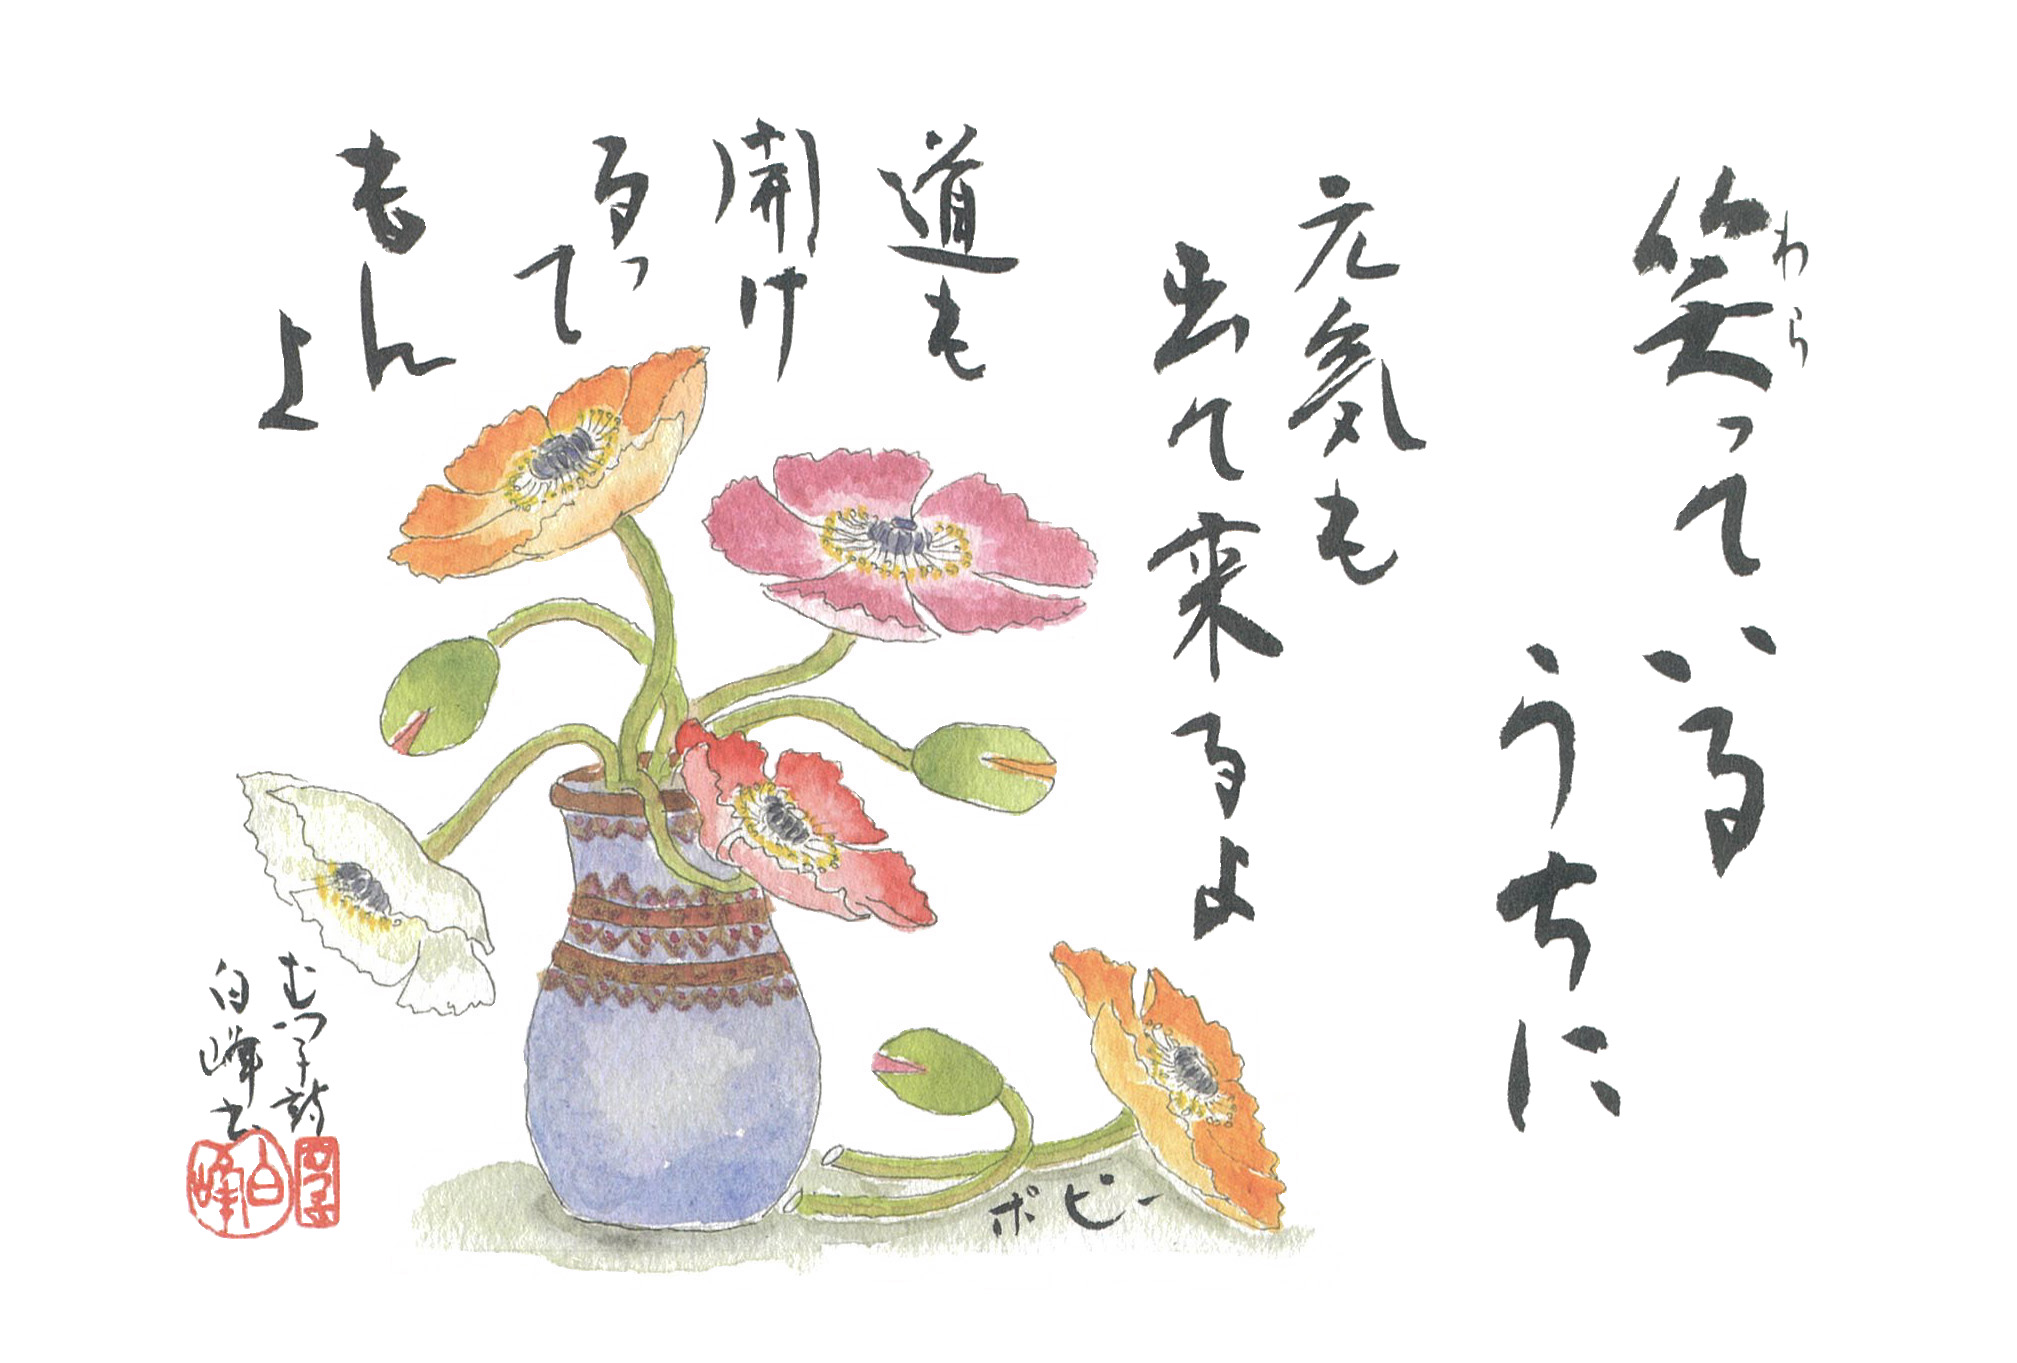 笑っている
わら
うちに
元気も
出て来るよ
道も
開け
るって
もん
よ
ポピー
むつ子詩
白峰书
白峰